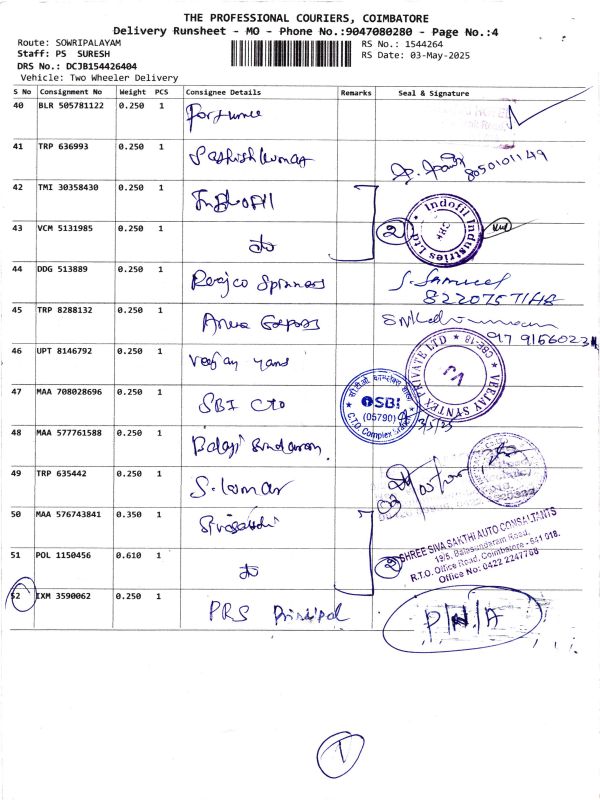 THE PROFESSIONAL COURIERS, COIMBATORE
Delivery Runsheet - MO - Phone No.:9047080280 - Page No.:4
Route: SOWRIPALAYAM
Staff: PS SURESH
DRS No.: DCJB154426404
Vehicle: Two Wheeler Delivery
RS No.: 1544264
RS Date: 03-May-2025
S No Consignment No Weight PCS Consignee Details Remarks Seal & Signature
40 BLR 505781122 0.250 1
41 TRP 636993 0.250 1 Sathish Kumar
8050101149
42 TMI 30358430 0.250 1 Indofil
2
Indofil Industries Ltd
CBE
43 VCM 5131985 0.250 1 do
44 DDG 513889 0.250 1 Reejco Spinners
S. Samuel
45 TRP 8288132 0.250 1
46 UPT 8146792 0.250 1 Veejay yarns
VEEJAY SYNTEX PRIVATE LTD
CBE-18
47 MAA 708028696 0.250 1 SBI CTO
SBI
(05790)
3/5/25
48 MAA 577761588 0.250 1 Balaji Sundaram
49 TRP 635442 0.250 1 S. Kumar
50 MAA 576743841 0.350 1
51 POL 1150456 0.610 1 do
2
SHREE SIVA SAKTHI AUTO CONSALTANTS
19/5, Balasundaram Road,
R.T.O. Office Road, Coimbatore - 641 018.
Office No: 0422 2247768
52 IXM 3590062 0.250 1 PRS Principal
P/N/A
1